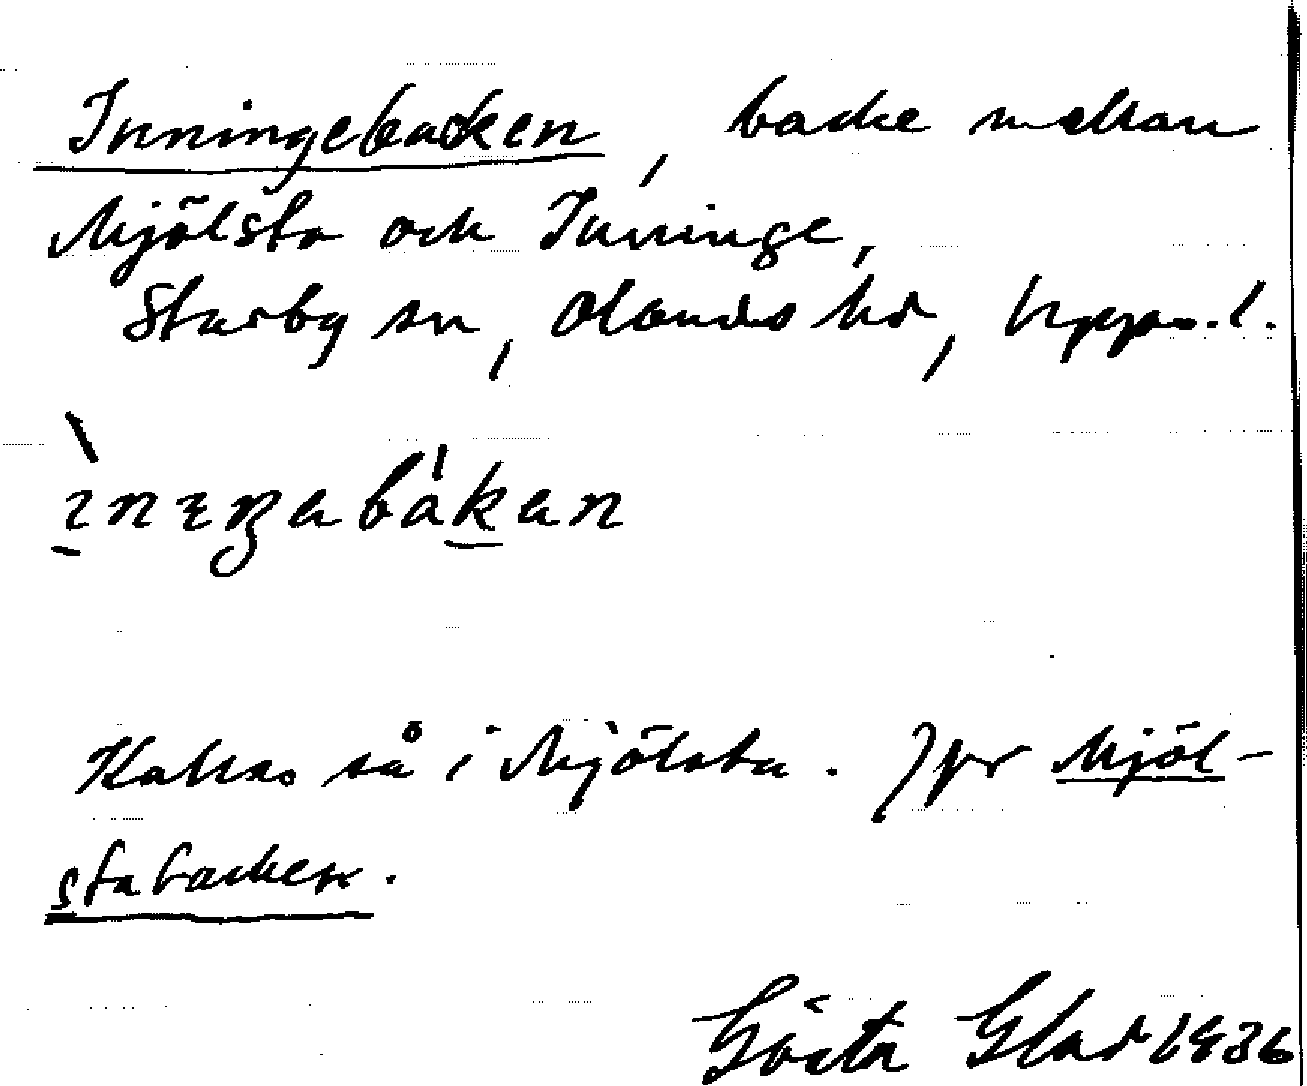 Inningebacken, backe mellan
Mjölsta och Inninge,
Stavby sn, Olands hd, Upps. l.
Kallas så i Mjölsta. Jfr Mjöl-
stabacken.
Gösta Glad 1936